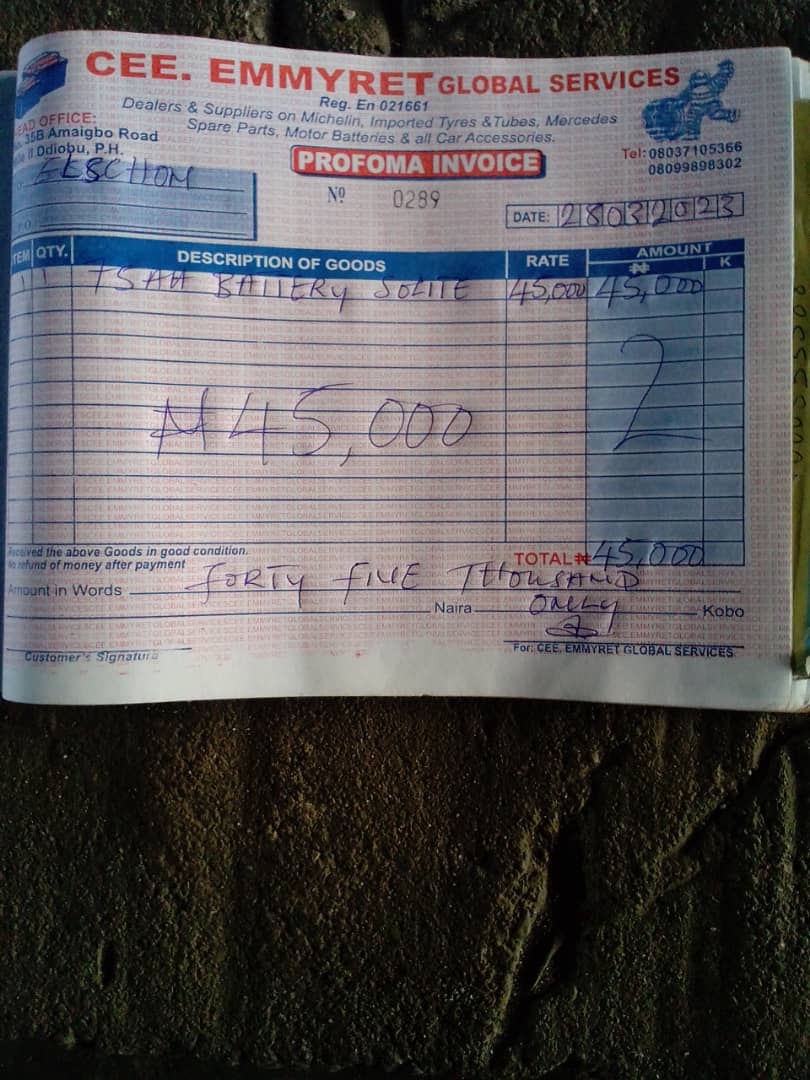 CEE. EMMYRET GLOBAL SERVICES
Reg. En 021661
Dealers & Suppliers on Michelin, Imported Tyres & Tubes, Mercedes
Spare Parts, Motor Batteries & all Car Accessories.
EAD OFFICE:
35B Amaigbo Road
II Ddiobu, P.H.
Tel: 08037105366
08099898302
PROFOMA INVOICE
Nº 0289
DATE: 28032023
TEM QTY. DESCRIPTION OF GOODS RATE AMOUNT
₦ K
1 1 75AH BATTERY SOLITE 45,000 45,000
₦45,000
Received the above Goods in good condition.
No refund of money after payment
TOTAL ₦ 45,000
Amount in Words FORTY FIVE THOUSAND
Naira ONLY Kobo
Customer's Signature
For: CEE. EMMYRET GLOBAL SERVICES